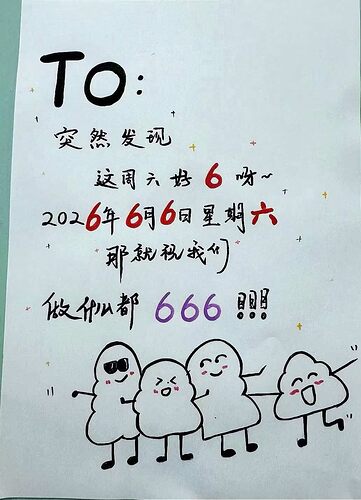 TO:
突然发现
这周六好6呀~
2026年6月6日星期六
那就祝我们
做什么都 666 !!!!